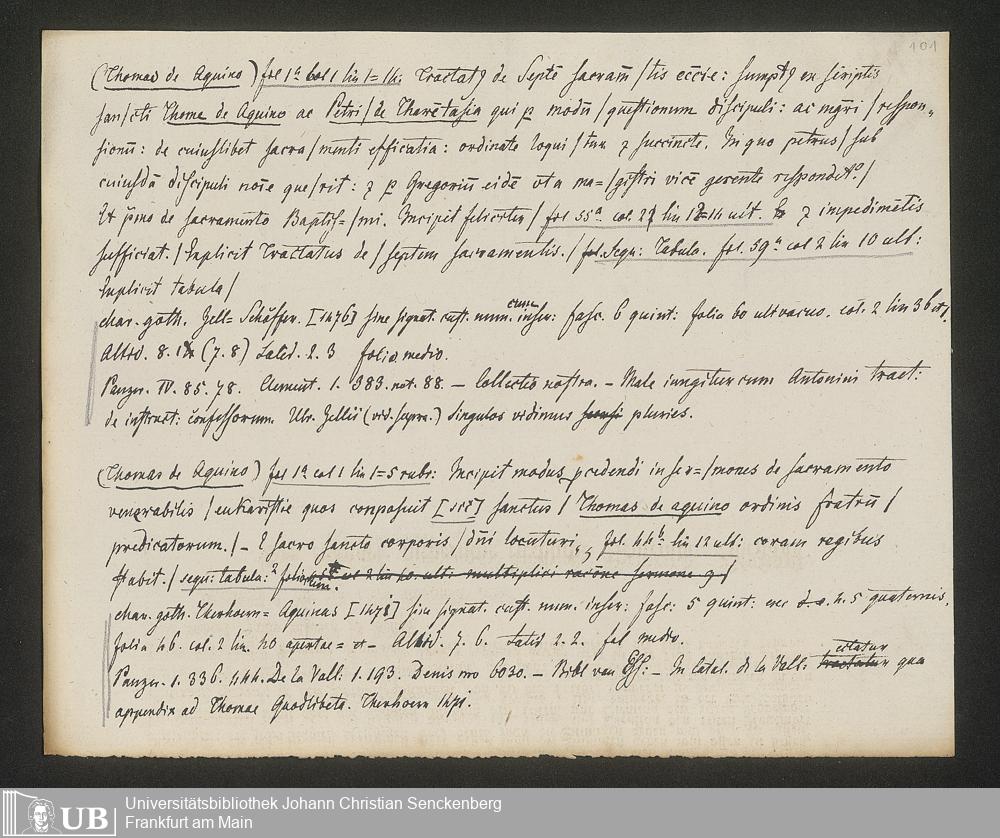 101
(Thomas de Aquino) fol 1a col 1 lin 1=14: Tractatꝰ de Septē sacram/tis eccīe: sumptꝰ ex scriptis
san/cti Thome de Aquino ac Petri/de Tharētasia qui ꝑ modū/questionum discipuli: ac mgr̄i/respon„
sionū: de cuiuslibet sacra/menti efficatia: ordinate loqui/tur ⁊ succincte. In quo petrus/sub
cuiusdā discipuli noīe que/rit: ⁊ ꝑ Gregoriū eidē ut a ma=/gistri vicē gerente respondet./
Et p̄mo de sacramento Baptis=/mi. Incipit feliciter/ fol 55a. col. 2 lin 12=14 ult. ⁊ impedimētis
sufficiat./Explicit Tractatus de/septem sacramentis./ fol. Sequ: Tabula. fol. 59a col 2 lin 10 ult:
Explicit tabula/
char. goth. Zell= Schöffer. [1476] sine signat. cust. num. cum inser: fasc. 6 quint: folia 60 ult vacuo. col. 2 lin 36
Altid. 8. (7. 8) Latid. 2. 3 folio medio.
Panzer. IV. 85. 78. Clement. 1. 383. not. 88. — Collectio nostra. – Male iungitur cum Antonini tract:
de instruct: confessorum. Ulr. Zellii (vid. supra.) Singulos vidimus pluries.
(Thomas de Aquino) fol 1a col 1 lin 1=5 rubr: Incipit modus ꝓcedendi in ser=/mones de sacramento
venerabilis/eukaristie quos composuit [scē] sanctus/Thomas de aquino ordinis fratrū/
predicatorum./ – E sacro sancto corporis/dn̄i locuturi„ fol. 44b: lin 12 ult: coram regibus
stabit./ sequ: tabula: 2 folior
char. goth. Therhoern= Aquinas [1478] sine signat. cust. num. inser: fasc: 5 quint: 5 quaternis.
folia 46. col. 2 lin. 40 apertae= et – Altid. 7. 6. Latid 2. 2. fol medio.
Panzer. 1. 336. 444. De la Vall: 1. 193. Denis nro 6030. – Bibl van Eß: – In Catal. de la Vall: citatur qua
appendix ad Thomae Quodlibeta. Therhoern 1471.
UB
Universitätsbibliothek Johann Christian Senckenberg
Frankfurt am Main